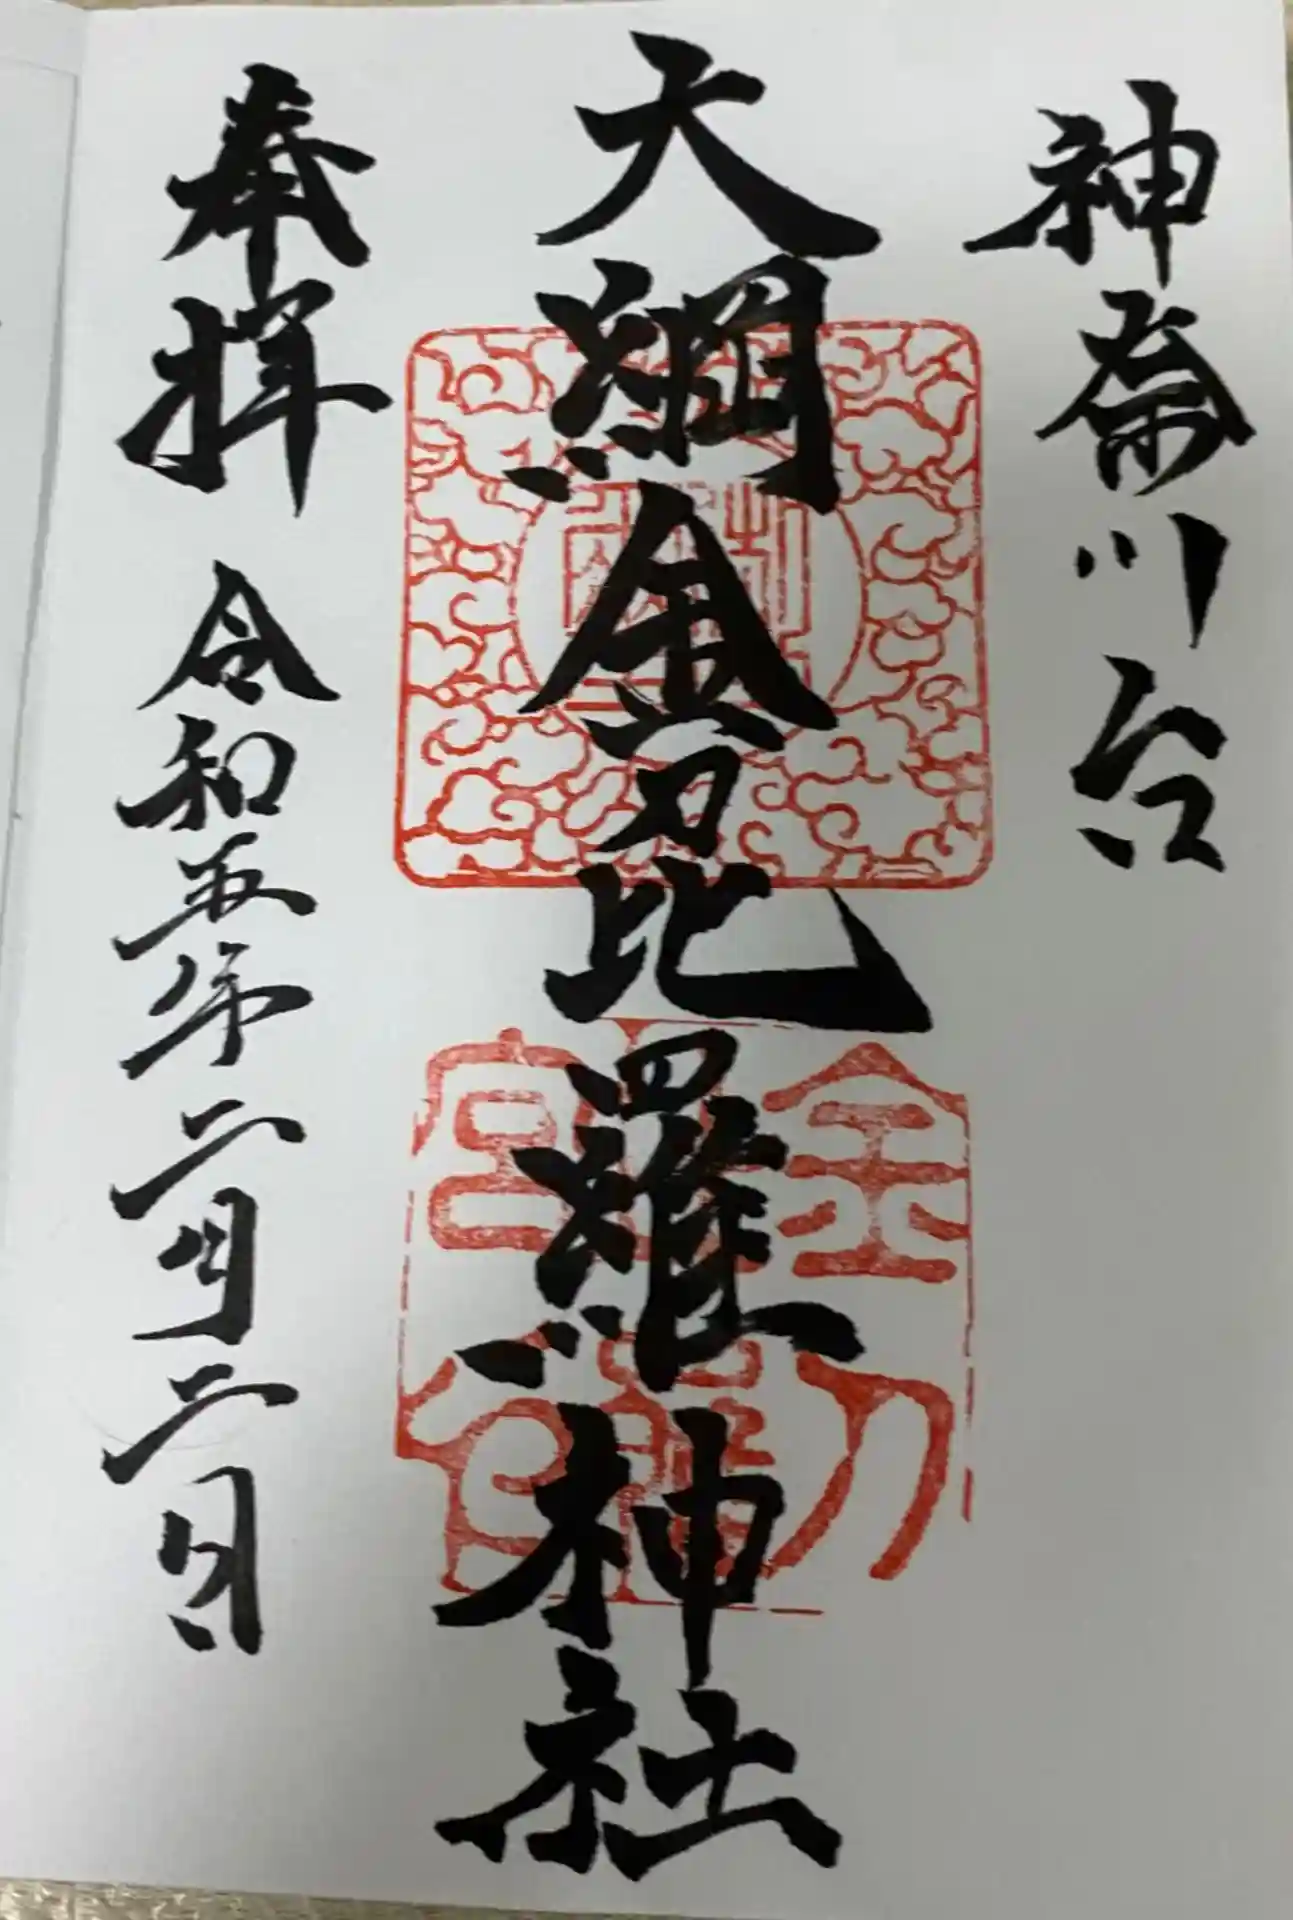 神奈川台
大綱金刀比羅神社
奉拝 令和五年二月二日